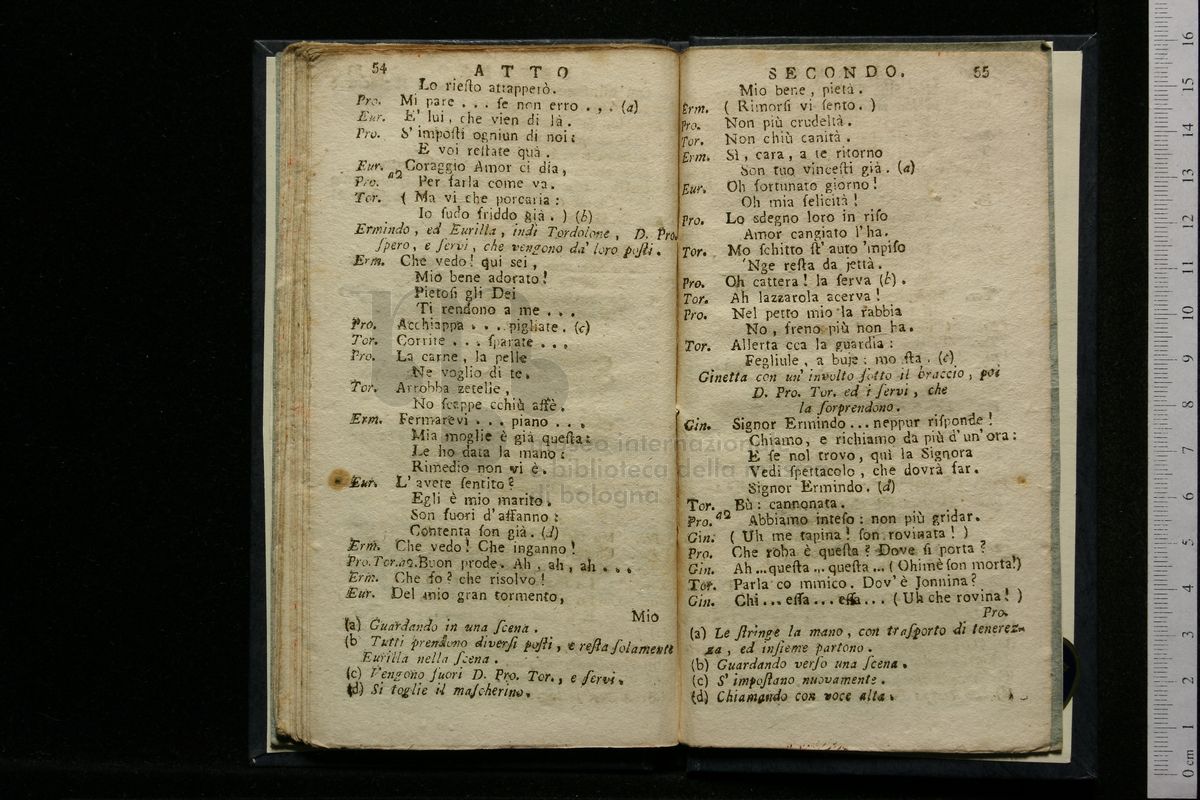 54 ATTO
Lo riesto attapperò.
Pro. Mi pare . . . se non erro . . . (a)
Eur. E' lui, che vien di là.
Pro. S' imposti ogniun di noi:
E voi restate quà.
Eur. Coraggio Amor ci dia,
a2
Pro. Per farla come va.
Tor. ( Ma vi che porcaria:
Io sudo friddo già. ) (b)
Ermindo, ed Eurilla, indi Tordolone, D. Pro.
spero, e servi, che vengono da' loro posti.
Erm. Che vedo! qui sei,
Mio bene adorato!
Pietosi gli Dei
Ti rendono a me . . .
Pro. Acchiappa . . . pigliate. (c)
Tor. Corrite . . . sparate . . .
Pro. La carne, la pelle
Ne voglio di te.
Tor. Arrobba zetelle,
No scappe cchiù affè.
Erm. Fermatevi . . . piano . . .
Mia moglie è già questa:
Le ho data la mano:
Rimedio non vi è.
Eur. L' avete sentito?
Egli è mio marito.
Son fuori d'affanno:
Contenta son già. (d)
Erm. Che vedo! Che inganno!
Pro. Tor. a2. Buon prode. Ah, ah, ah . . .
Erm. Che fo? che risolvo!
Eur. Del mio gran tormento,
Mio
(a) Guardando in una scena.
(b Tutti prendono diversi posti, e resta solamente
Eurilla nella scena.
(c) Vengono fuori D. Pro. Tor., e servi.
(d) Si toglie il mascherino.
SECONDO. 55
Mio bene, pietà.
Erm. ( Rimorsi vi sento. )
Pro. Non più crudeltà.
Tor. Non chiù canità.
Erm. Sì, cara, a te ritorno
Son tuo vincesti già. (a)
Eur. Oh fortunato giorno!
Oh mia felicità!
Pro. Lo sdegno loro in riso
Amor cangiato l'ha.
Tor. Mo schitto st' auto 'mpiso
'Nge resta da jettà.
Pro. Oh cattera! la serva (b).
Tor. Ah lazzarola acerva!
Pro. Nel petto mio la rabbia
No, freno più non ha.
Tor. Allerta cca la guardia:
Fegliule, a buje: mo sta. (c)
Ginetta con un' involto sotto il braccio, poi
D. Pro. Tor. ed i servi, che
la sorprendono.
Gin. Signor Ermindo ... neppur risponde!
Chiamo, e richiamo da più d'un'ora:
E se nol trovo, qui la Signora
Vedi spettacolo, che dovrà far.
Signor Ermindo. (d)
Tor. Bù: cannonata.
Pro. a2 Abbiamo inteso: non più gridar.
Gin. ( Uh me tapina! son rovinata! )
Pro. Che roba è questa? Dove si porta?
Gin. Ah ... questa ... questa ... ( Ohimè son morta!)
Tor. Parla co mmico. Dov' è Jonnina?
Gin. Chi ... essa ... essa ... ( Uh che rovina! )
Pro.
(a) Le stringe la mano, con trasporto di tenerez-
za, ed insieme partono.
(b) Guardando verso una scena.
(c) S' impostano nuovamente.
(d) Chiamando con voce alta.
museo internazion
biblioteca della
di bologna
0 cm 1 2 3 4 5 6 7 8 9 10 11 12 13 14 15 16